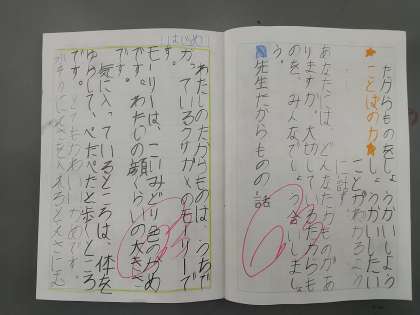 たからものをしょうかいしよう
★ことばの力★
あなたには、どんなたからものがあ
りますか。大切しているたからも
のを、みんなでしょう会しましょ
先生だからものの話
はじめ
わたしのたからものは、うちで
かっているクサガメのモーリーで
す。
モーリーは、こいみどり色のかめ
です。わたしの顔くらいの大きさ
です。
気に入っているところは、体を
ゆらして、ぺたぺたと歩くところ
です。